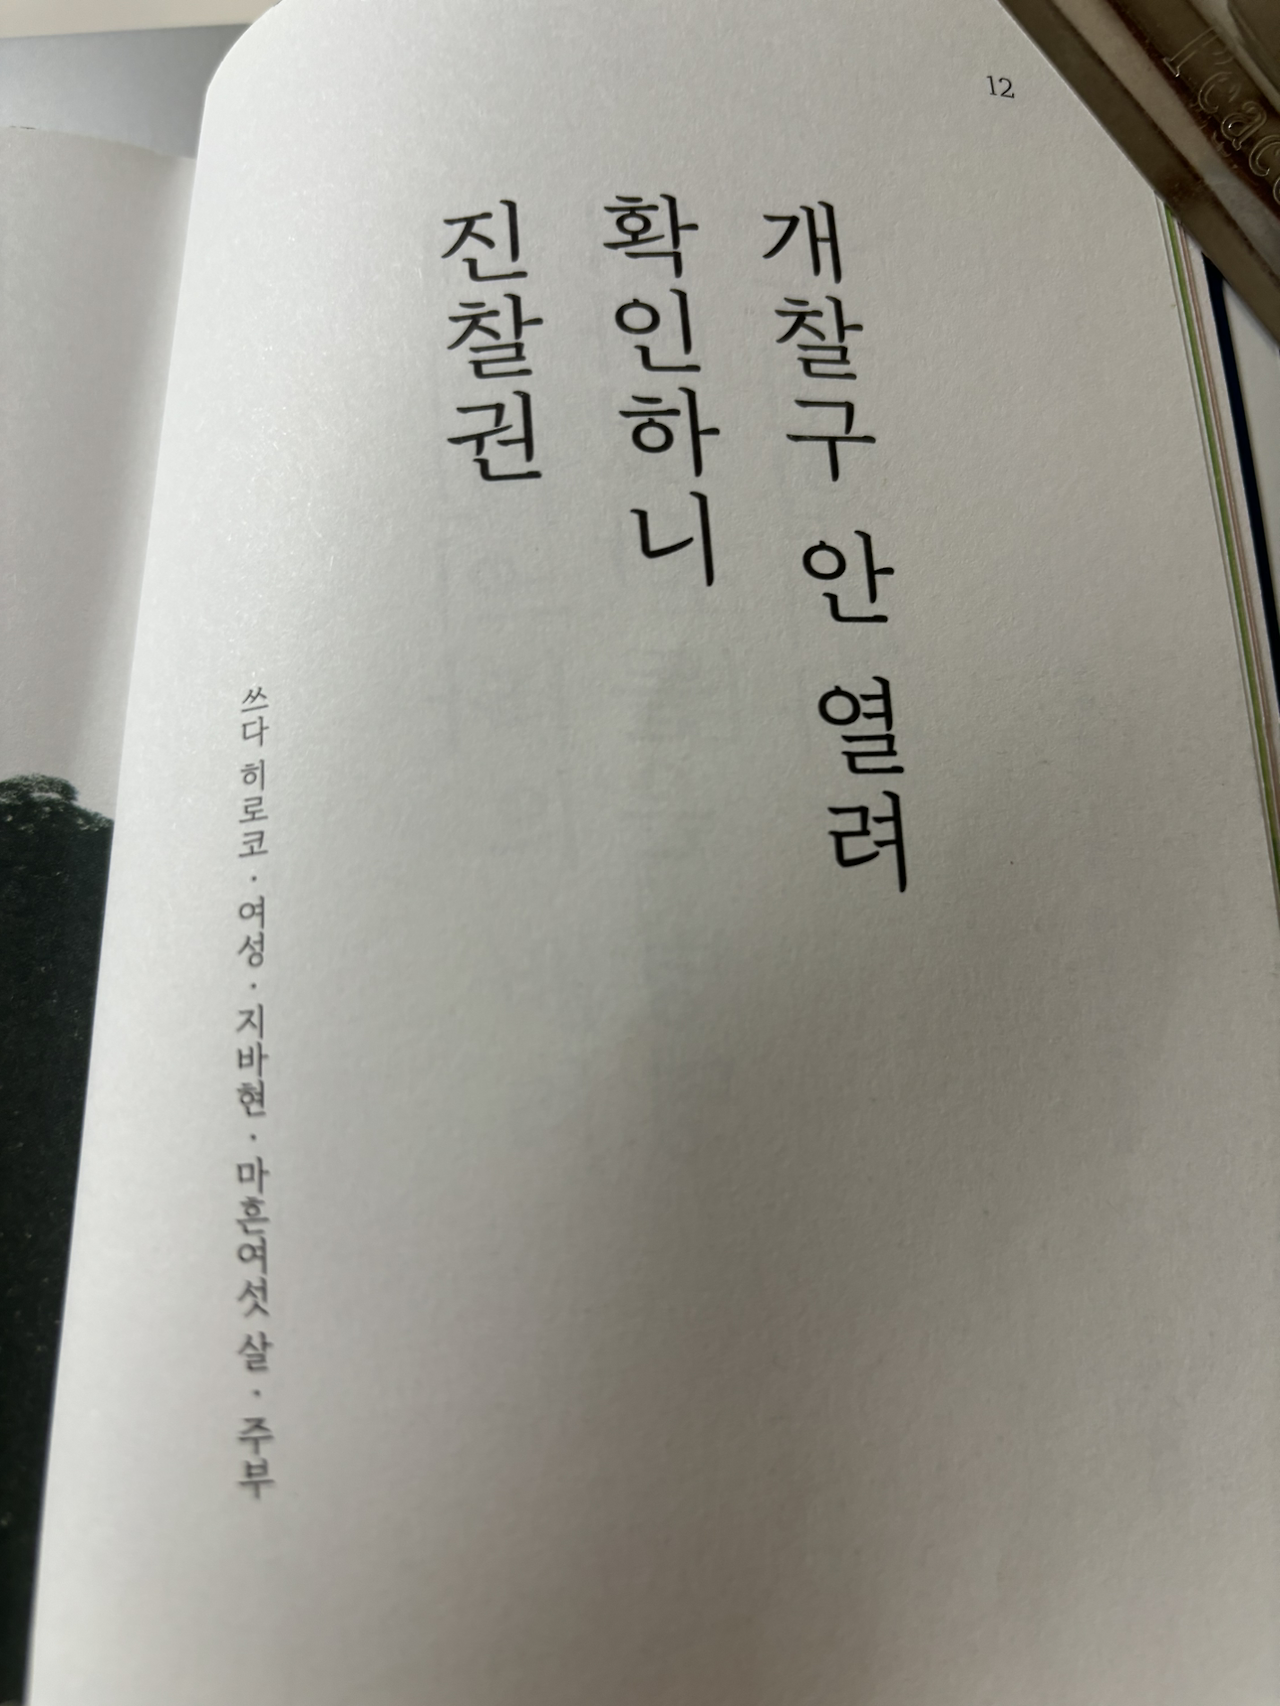 12
개찰구 안 열려
확인하니
진찰권
쓰다 히로코 · 여성 · 지바현 · 마흔여섯 살 · 주부